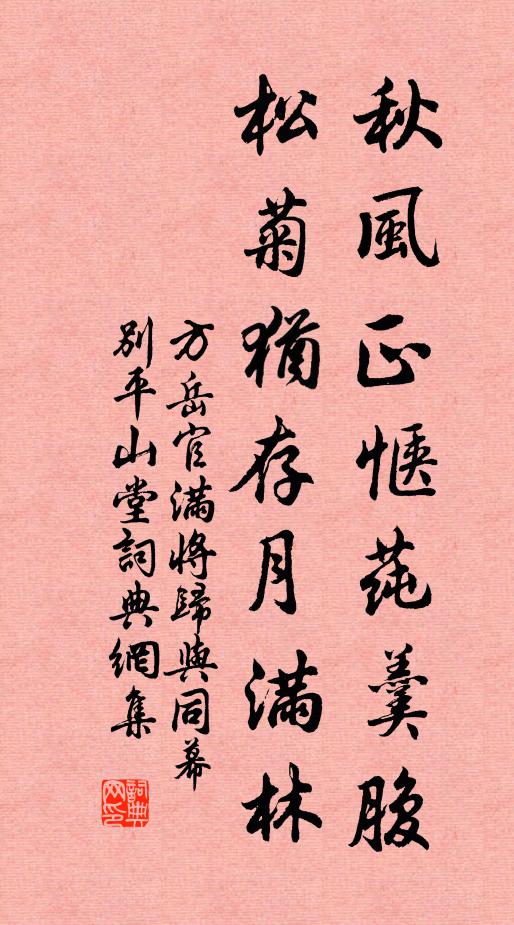 秋風正惬蒓羹腹
松菊猶存月滿林
方岳官滿將歸與同幕
别平山堂詞典網集
詞典網印